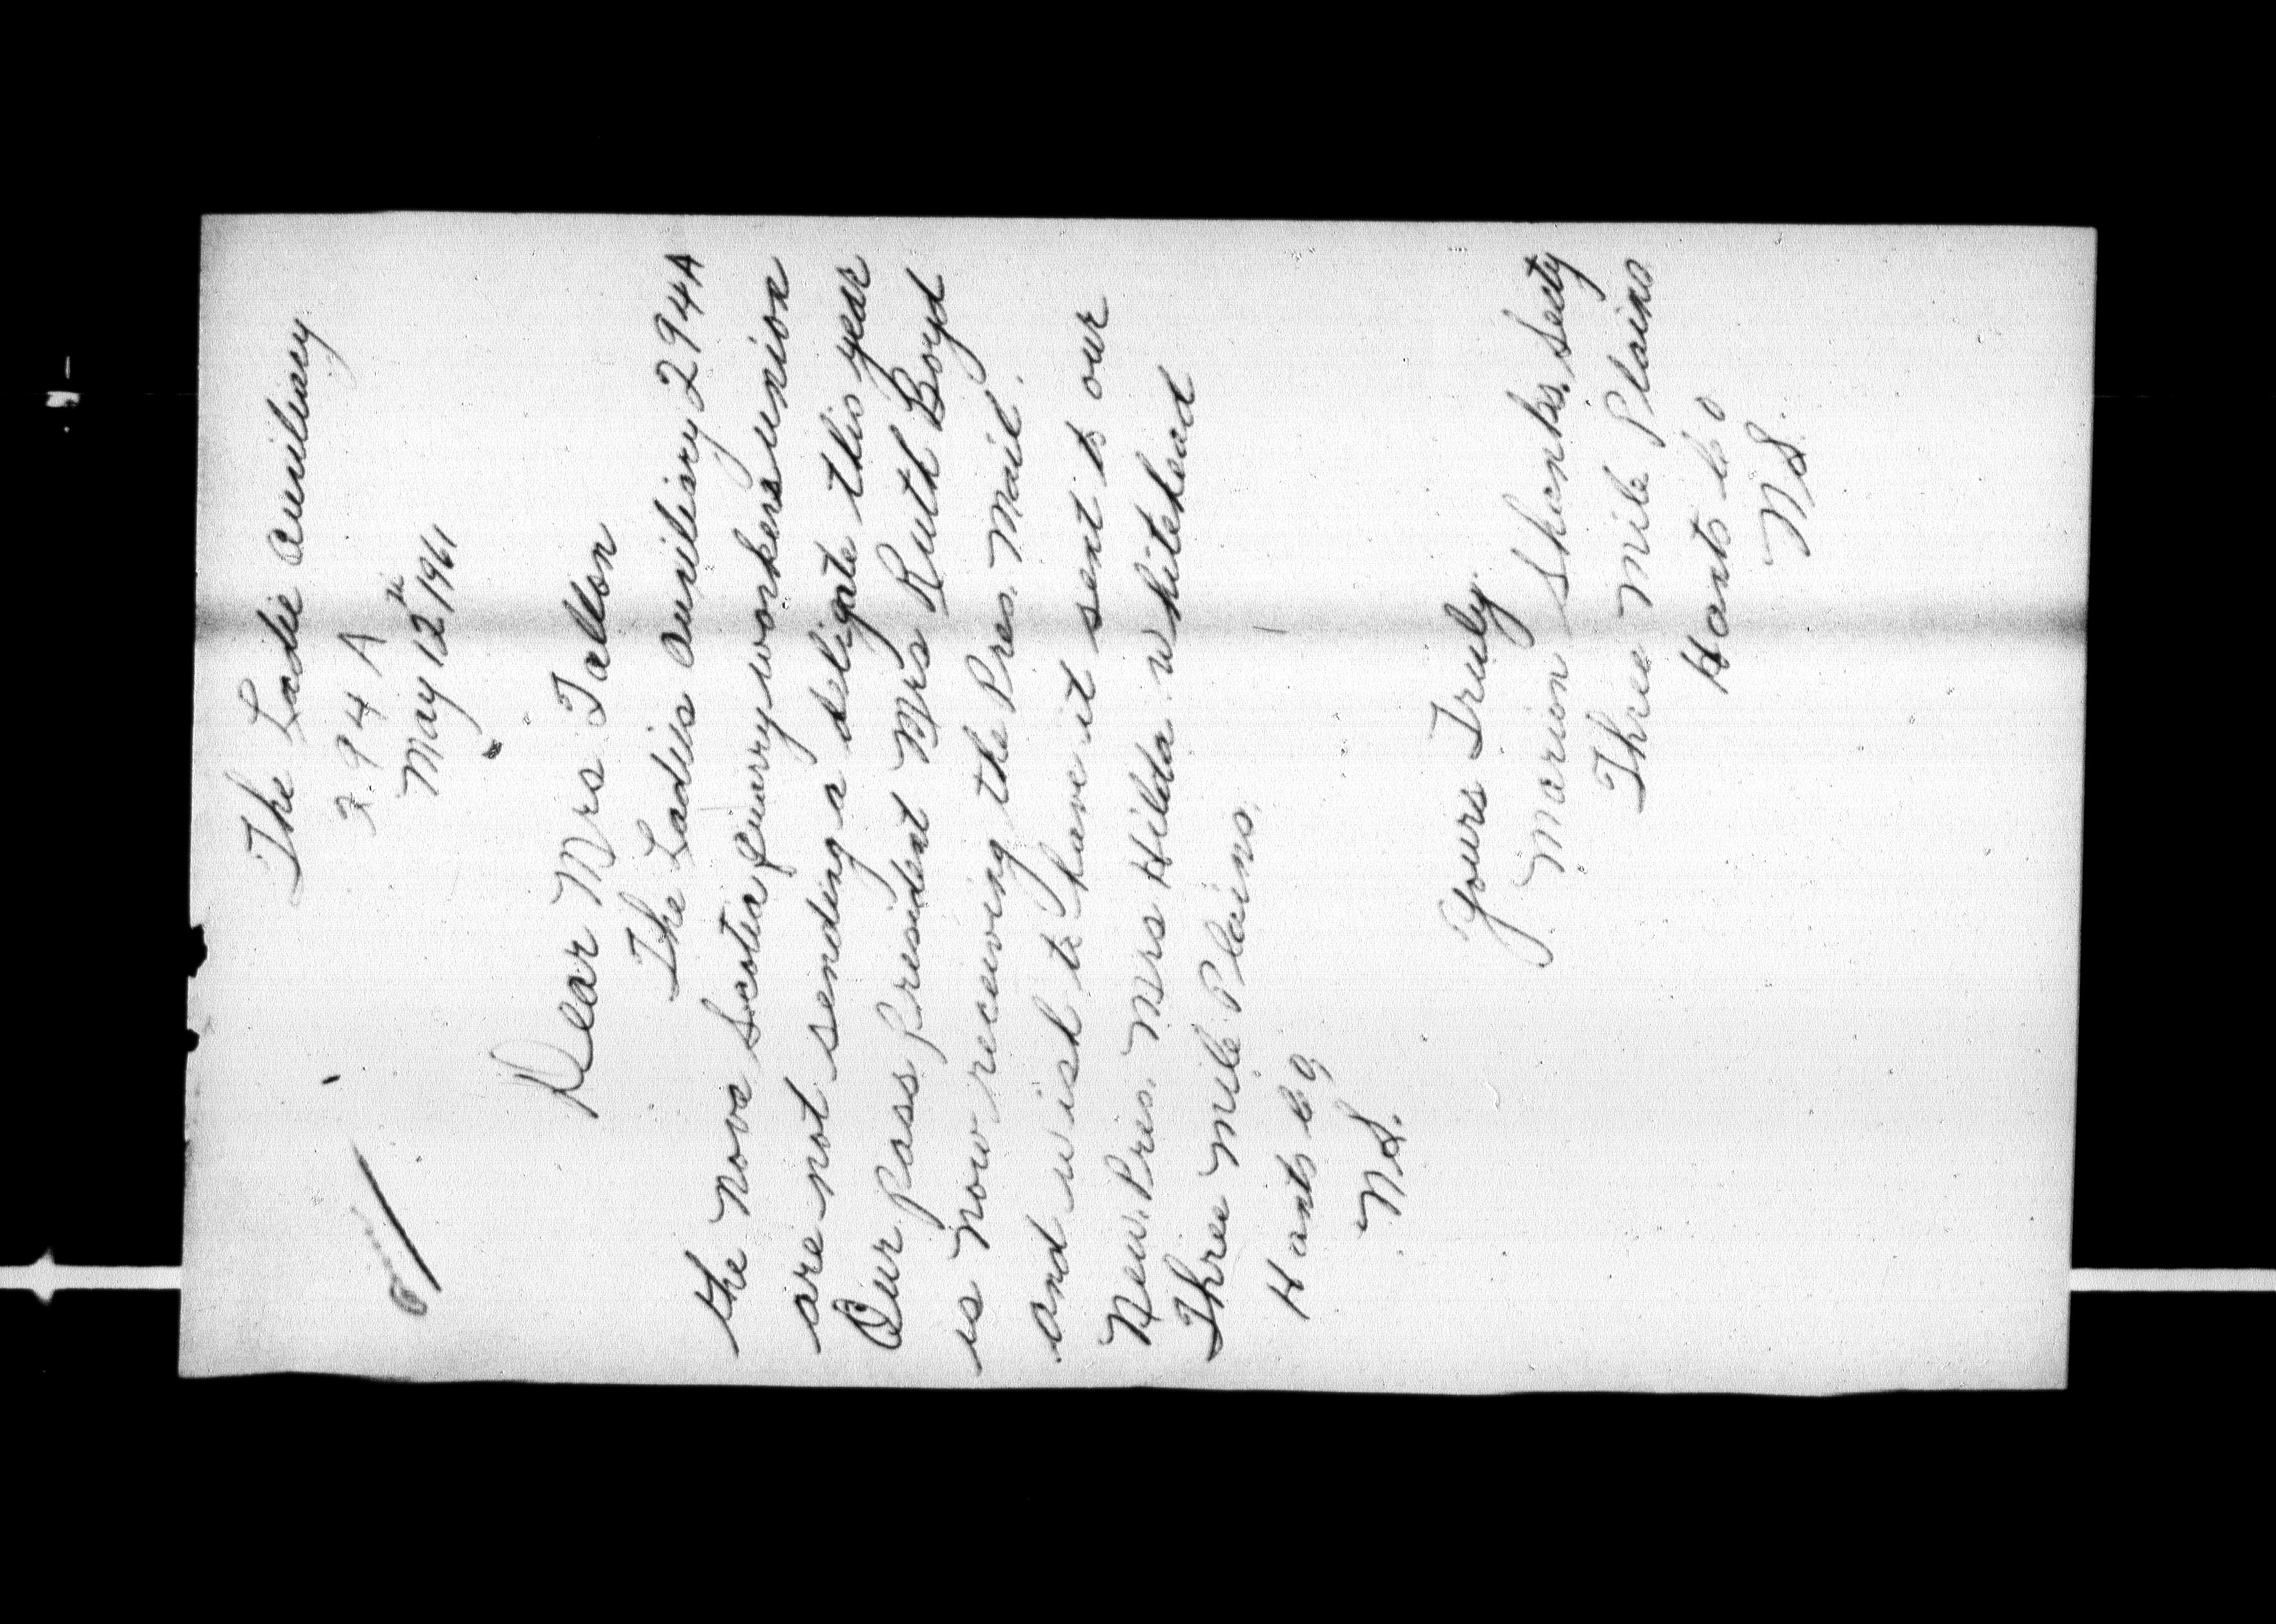 The Ladie Auxiliary
294 A
May 12th 1961
Dear Mrs Tallon
The Ladies Auxiliary 294A
the Nova Scotia Quarry workers union
are not sending a deligate this year
Our Pass President Mrs Ruth Boyd
is now receiving the Pres. Mail.
and wish to have it sent to our
New. Pres. Mrs Hilda Whitehead
Three Mile Plains.
Hants Co,
N.S.
Yours Truly
Marion Shanks. Secty
Three Mile Plains
Hants Co
N.S.